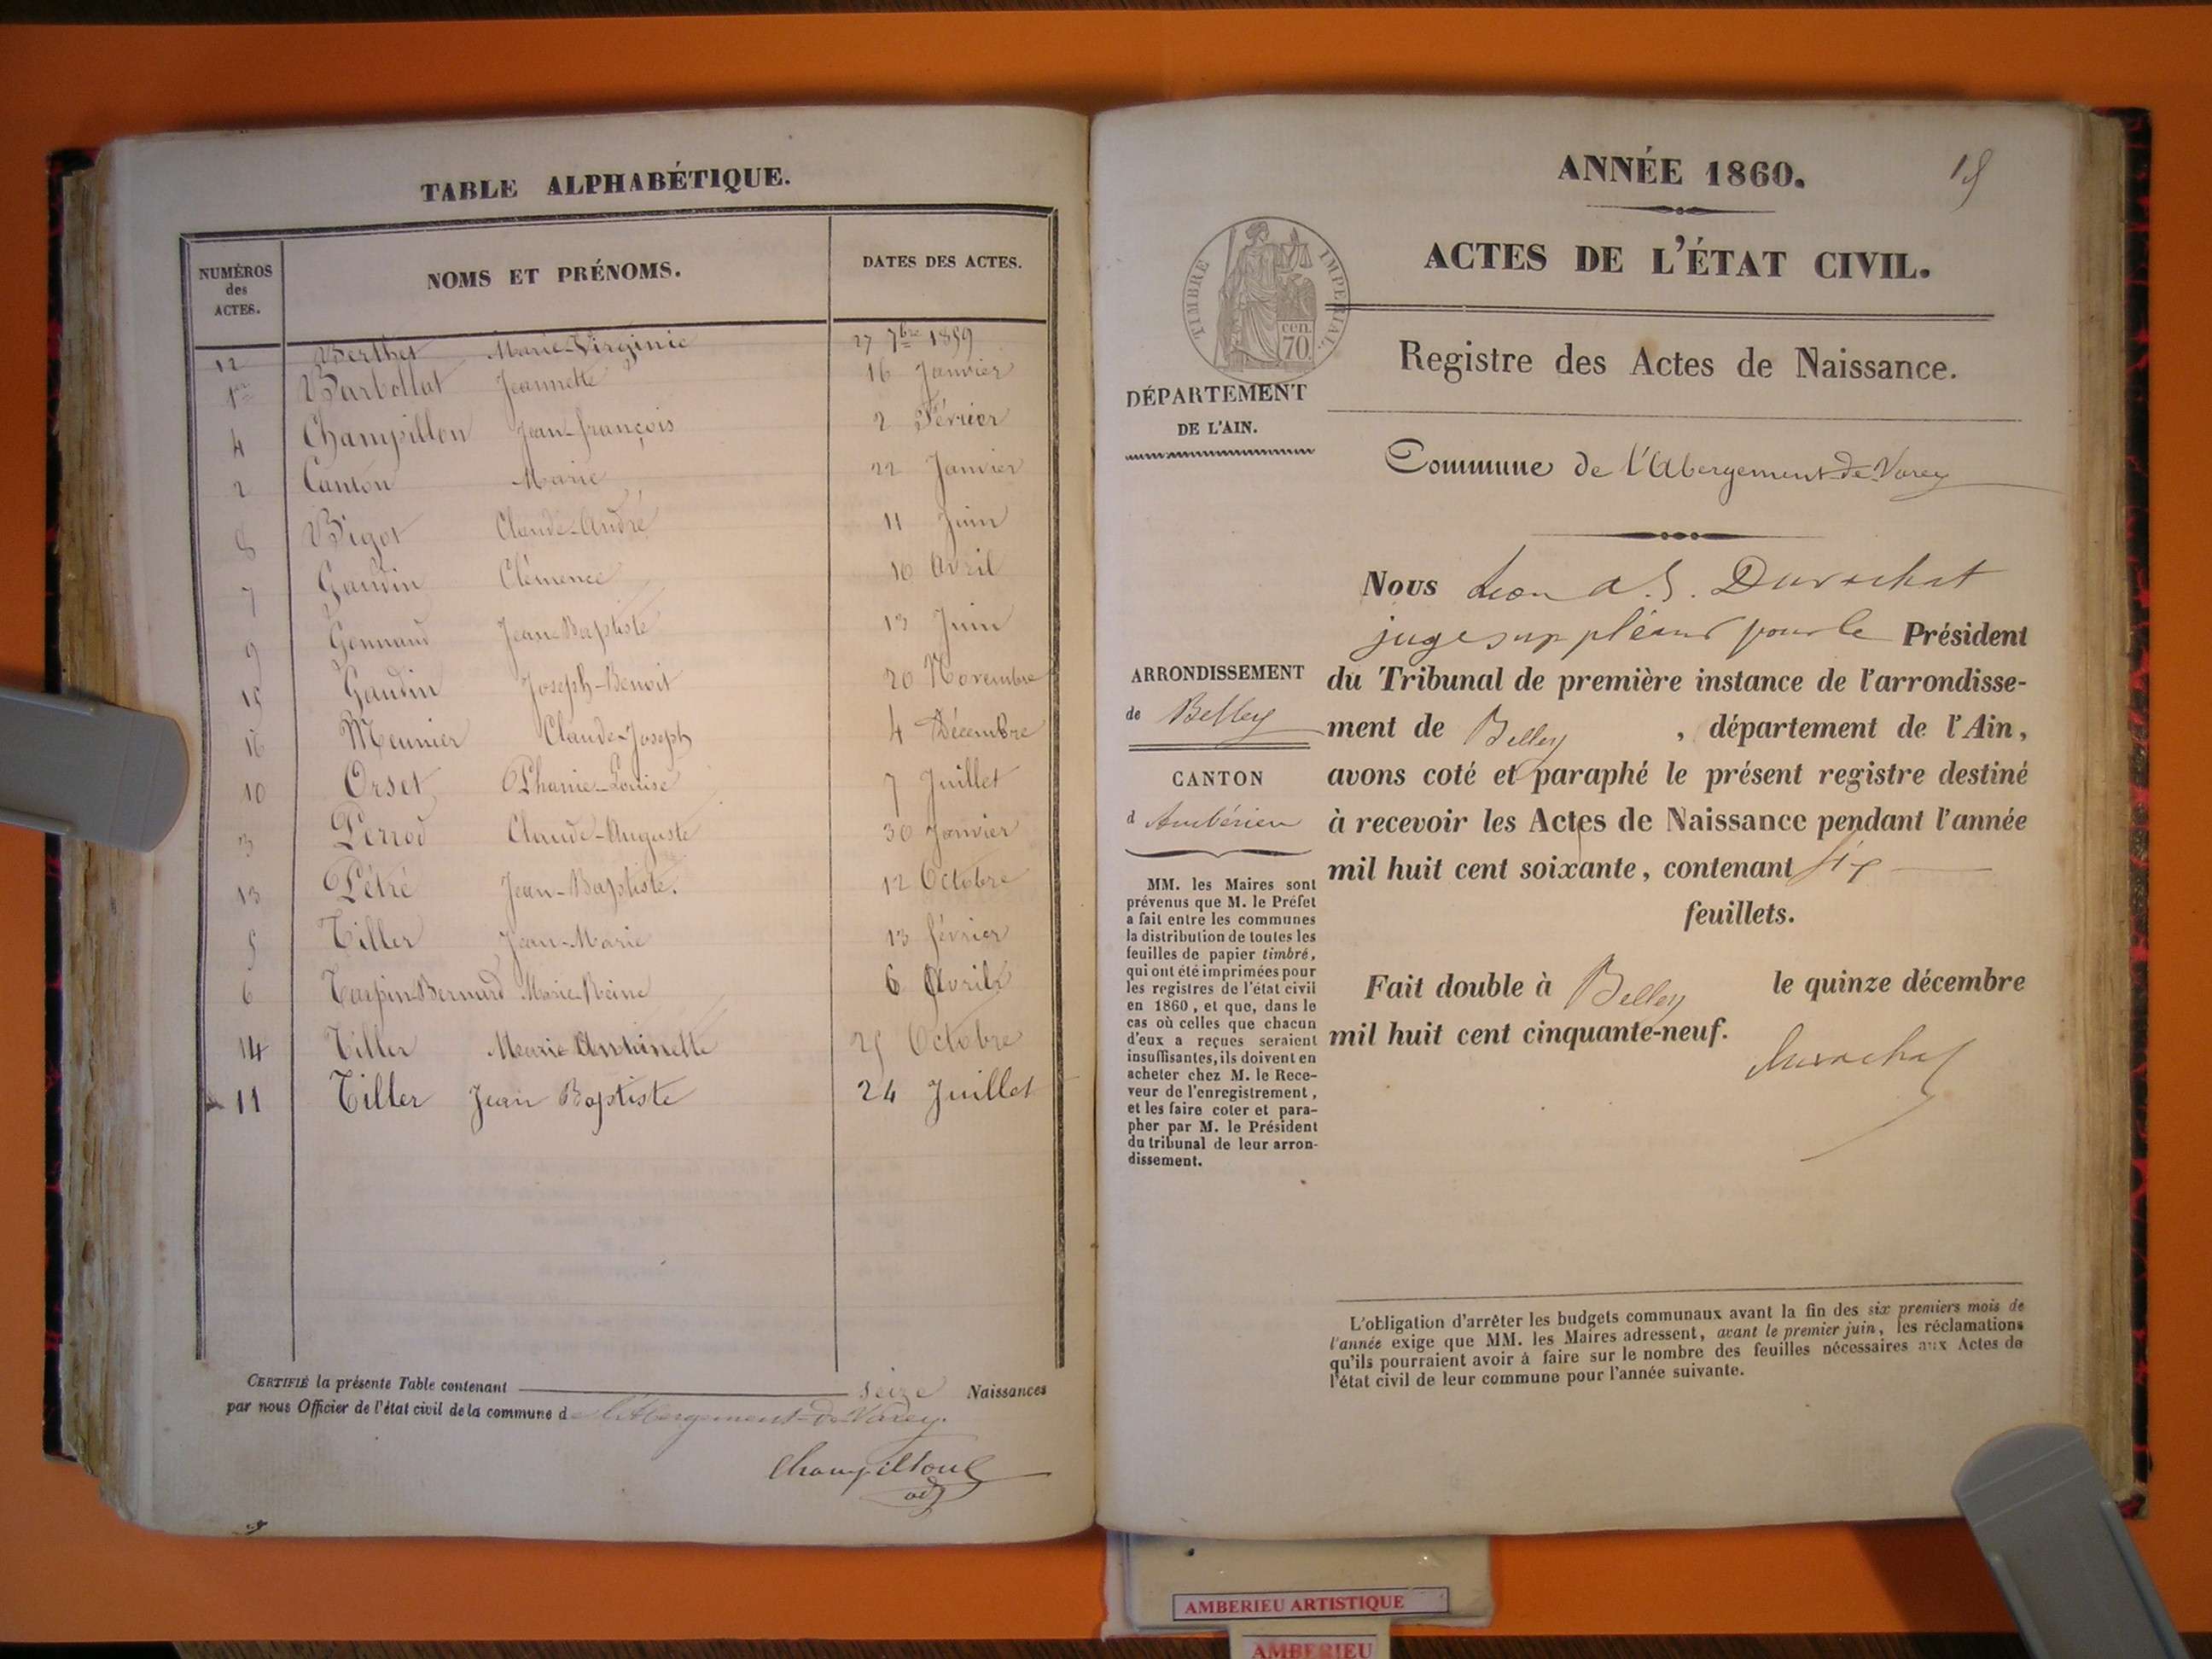 TABLE ALPHABÉTIQUE.
NUMÉROS des ACTES. NOMS ET PRÉNOMS. DATES DES ACTES.
12 Berthet Marie-Virginie 27 7bre 1859
1er Barbollat Jeannette 16 Janvier
4 Champillon Jean-françois 2 Février
2 Canton Marie 22 Janvier
8 Bigot Claude-André 11 Juin
7 Gaudin Clémence 10 Avril
9 Gonnand Jean-Baptiste 13 Juin
15 Gaudin Joseph-Benoit 20 Novembre
16 Meunier Claude-Joseph 4 Décembre
10 Orset Phanie-Louise 7 Juillet
3 Perrod Claude-Auguste 30 Janvier
13 Pétré Jean-Baptiste. 12 Octobre
5 Tiller Jean-Marie 13 février
6 Tarpin-Bernard Marie-Reine 6 Avril
14 Tiller Marie Antoinette 25 Octobre
11 Tiller Jean Baptiste 24 Juillet
CERTIFIÉ la présente Table contenant seize Naissances
par nous Officier de l'état civil de la commune de l'Abergement-de-Varey.
Champillon
adj
ANNÉE 1860.
15
ACTES DE L'ÉTAT CIVIL.
TIMBRE IMPERIAL
cen.
70.
Registre des Actes de Naissance.
DÉPARTEMENT
DE L'AIN.
Commune de l'Abergement-de-Varey
Nous Leon a. S. Durochat
juge suppléant pour le Président
du Tribunal de première instance de l'arrondisse-
ment de Belley , département de l'Ain,
avons coté et paraphé le présent registre destiné
à recevoir les Actes de Naissance pendant l'année
mil huit cent soixante, contenant six
feuillets.
Fait double à Belley le quinze décembre
mil huit cent cinquante-neuf.
Durochat
ARRONDISSEMENT
de Belley
CANTON
d Ambérieu
MM. les Maires sont
prévenus que M. le Préfet
a fait entre les communes
la distribution de toutes les
feuilles de papier timbré,
qui ont été imprimées pour
les registres de l'état civil
en 1860, et que, dans le
cas où celles que chacun
d'eux a reçues seraient
insuffisantes, ils doivent en
acheter chez M. le Rece-
veur de l'enregistrement,
et les faire coter et para-
pher par M. le Président
du tribunal de leur arron-
dissement.
L'obligation d'arrêter les budgets communaux avant la fin des six premiers mois de
l'année exige que MM. les Maires adressent, avant le premier juin, les réclamations
qu'ils pourraient avoir à faire sur le nombre des feuilles nécessaires aux Actes de
l'état civil de leur commune pour l'année suivante.
AMBERIEU ARTISTIQUE
AMBERIEU